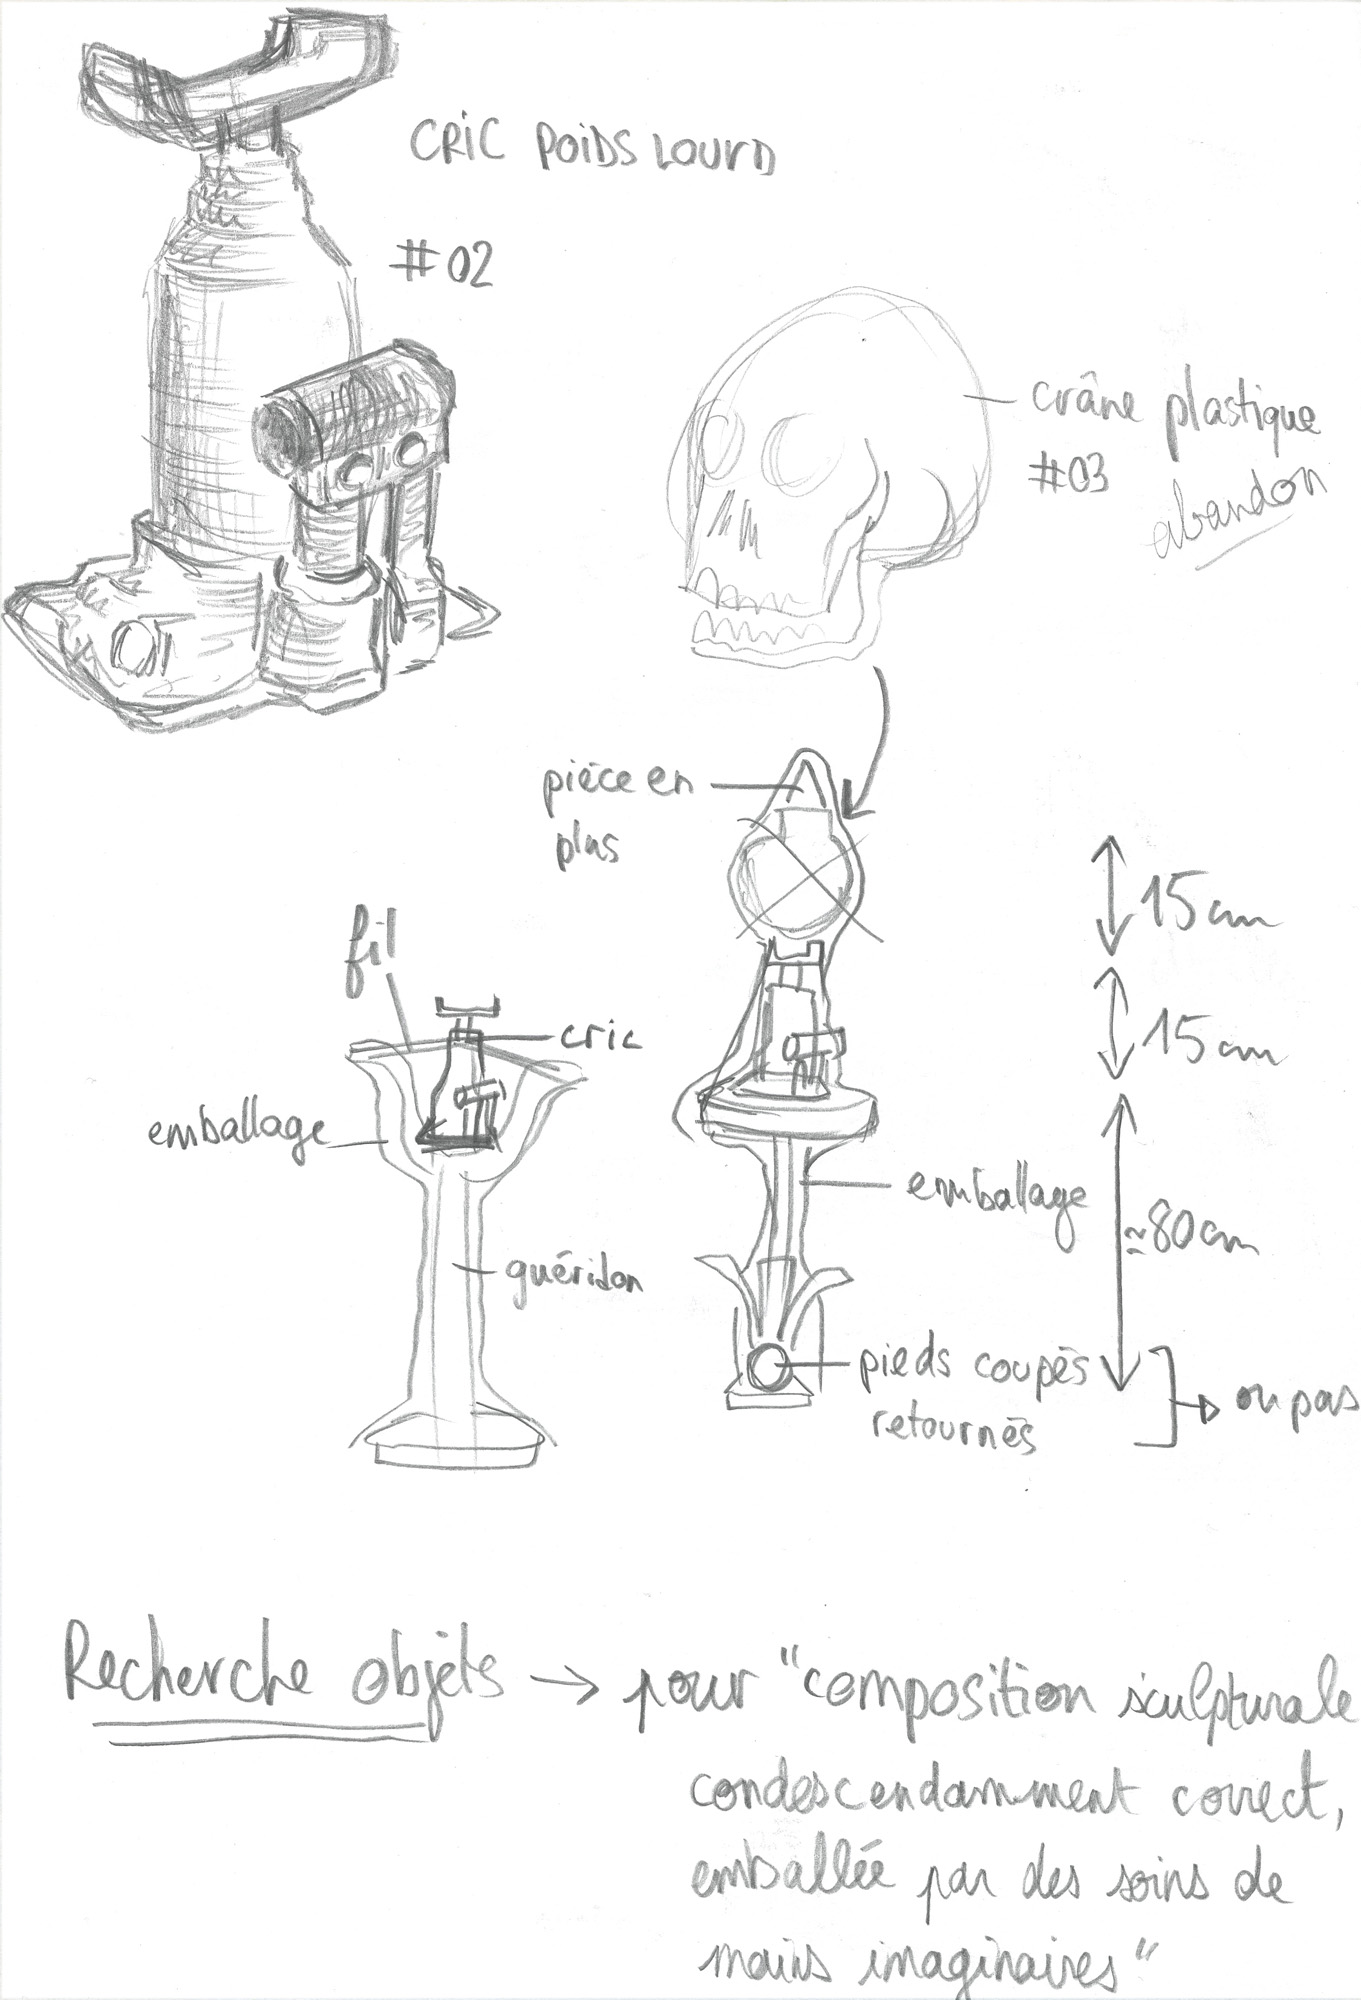 CRIC POIDS LOURD
#02
crâne plastique
#03
abandon
pièce en
plus
15 cm
fil
15 cm
cric
emballage
emballage
≃80cm
guéridon
pieds coupés
retournés
ou pas
Recherche objets → pour "composition sculpturale
condescendamment correct,
emballée par des soins de
mains imaginaires"